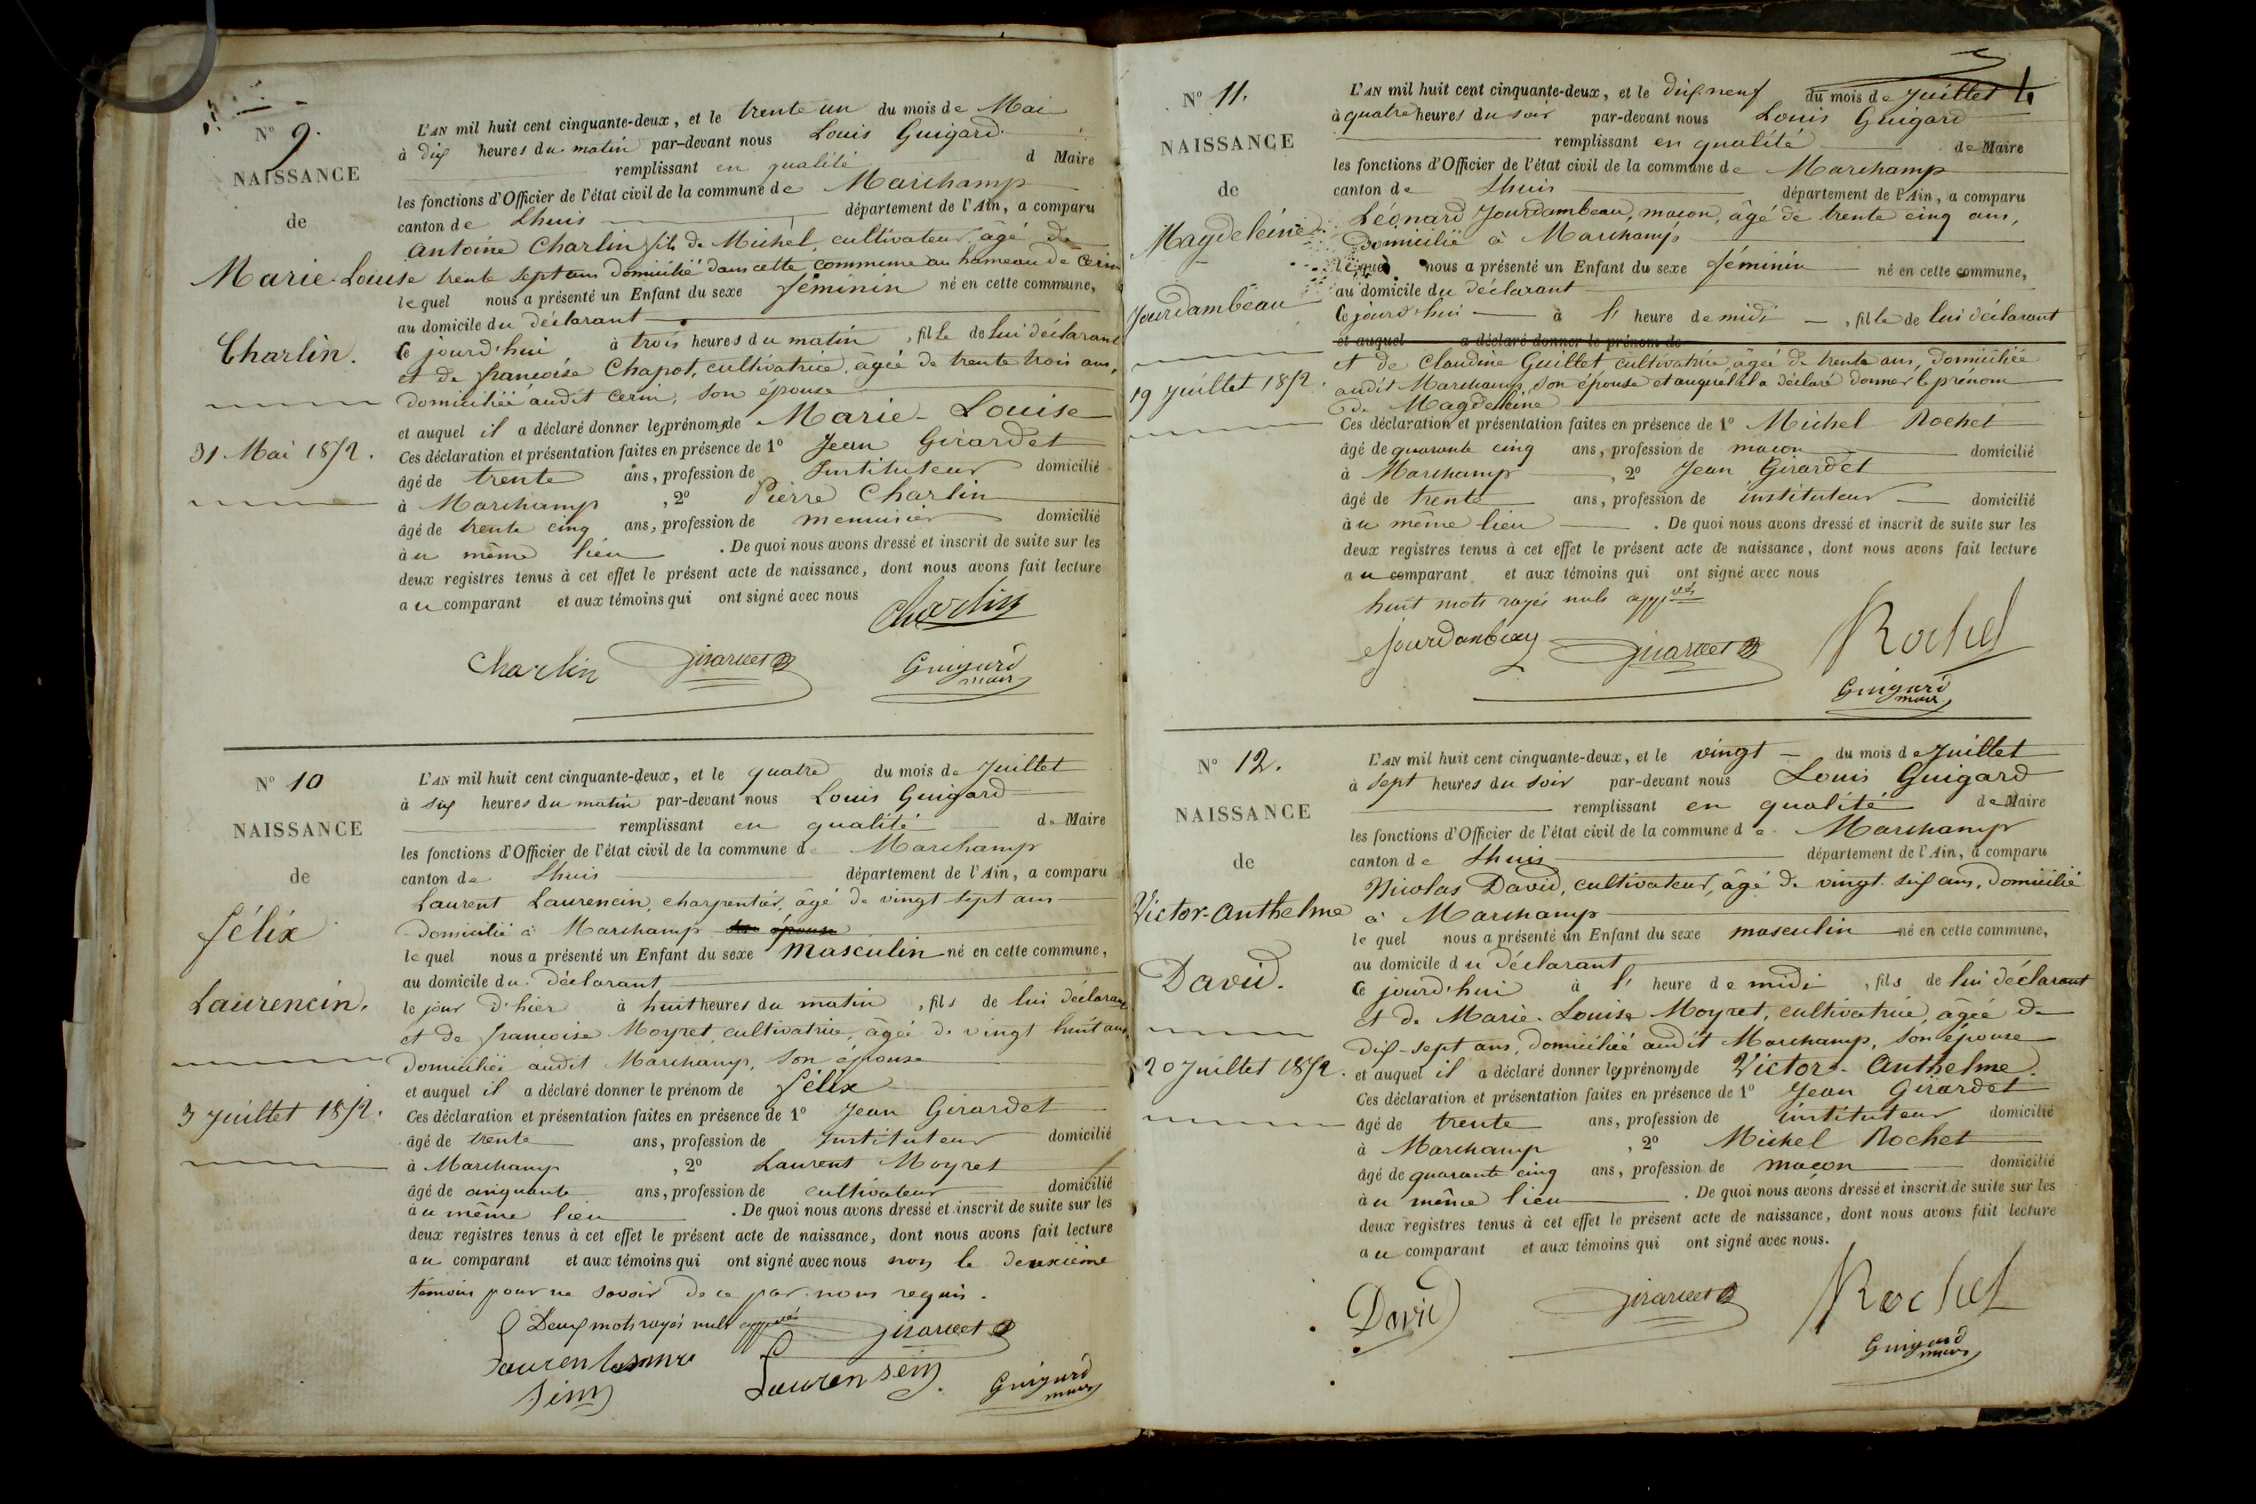 N° 9.
NAISSANCE
de
Marie-Louise
Charlin.
31 Mai 1852.
L'AN mil huit cent cinquante-deux, et le trente un du mois de Mai
à dix heures du matin par-devant nous Louis Guigard
remplissant en qualité d Maire
les fonctions d'Officier de l'état civil de la commune de Marchamp
canton de Lhuis département de l'Ain, a comparu
Antoine Charlin fils de Michel, cultivateur, agé de
trente sept ans domicilié dans cette commune au hameau de Cerin
lequel nous a présenté un Enfant du sexe féminin né en cette commune,
au domicile du déclarant
Ce jourd'hui à trois heures du matin, fille de lui déclarant
et de françoise Chapot, cultivatrice, âgée de trente trois ans,
domiciliée audit Cerin, son épouse
et auquel il a déclaré donner les prénoms de Marie-Louise
Ces déclaration et présentation faites en présence de 1° Jean Girardet
âgé de trente ans, profession de Instituteur domicilié
à Marchamp, 2° Pierre Charlin
âgé de trente cinq ans, profession de menuisier domicilié
au même lieu. De quoi nous avons dressé et inscrit de suite sur les
deux registres tenus à cet effet le présent acte de naissance, dont nous avons fait lecture
au comparant et aux témoins qui ont signé avec nous
Charlin
Charlin Girardet Guigard
maire
N° 10
NAISSANCE
de
félix
Laurencin.
3 Juillet 1852.
L'AN mil huit cent cinquante-deux, et le quatre du mois de Juillet
à six heures du matin par-devant nous Louis Guigard
remplissant en qualité de Maire
les fonctions d'Officier de l'état civil de la commune d Marchamp
canton de Lhuis département de l'Ain, a comparu
Laurent Laurencin, charpentier, âgé de vingt sept ans
domicilié à Marchamp son épouse
lequel nous a présenté un Enfant du sexe masculin né en cette commune,
au domicile du déclarant
le jour d'hier à huit heures du matin, fils de lui déclarant
et de françoise Moyret, cultivatrice, âgée de vingt huit ans
domiciliée audit Marchamp, son épouse
et auquel il a déclaré donner le prénom de félix
Ces déclaration et présentation faites en présence de 1° Jean Girardet
âgé de trente ans, profession de Instituteur domicilié
à Marchamp, 2° Laurent Moyret
âgé de cinquante ans, profession de cultivateur domicilié
au même lieu. De quoi nous avons dressé et inscrit de suite sur les
deux registres tenus à cet effet le présent acte de naissance, dont nous avons fait lecture
au comparant et aux témoins qui ont signé avec nous non le deuxième
témoin pour ne savoir de ce par nous requis.
Deux mots rayés nuls approuvés Girardet
Laurensein
Guigard
maire
N° 11.
NAISSANCE
de
Magdeleine
Jourdambeau
19 Juillet 1852.
L'AN mil huit cent cinquante-deux, et le dix neuf du mois de Juillet
à quatre heures du soir par-devant nous Louis Guigard
remplissant en qualité de Maire
les fonctions d'Officier de l'état civil de la commune de Marchamp
canton de Lhuis département de l'Ain, a comparu
Léonard Jourdambeau, maçon, âgé de trente cinq ans,
domicilié à Marchamp
lequel nous a présenté un Enfant du sexe féminin né en cette commune,
au domicile du déclarant
Ce jourd'hui à l' heure de midi, fille de lui déclarant
et auquel a déclaré donner le prénom de
et de Claudine Guillet cultivatrice, âgée de trente ans, domiciliée
audit Marchamp, son épouse et auquel il a déclaré donner le prénom
de Magdeleine
Ces déclaration et présentation faites en présence de 1° Michel Rochet
âgé de quarante cinq ans, profession de maçon domicilié
à Marchamp, 2° Jean Girardet
âgé de trente ans, profession de instituteur domicilié
au même lieu. De quoi nous avons dressé et inscrit de suite sur les
deux registres tenus à cet effet le présent acte de naissance, dont nous avons fait lecture
au comparant et aux témoins qui ont signé avec nous
huit mots rayés nuls app.vés
Jourdanbeau Girardet Rochet
Guigard
maire
N° 12.
NAISSANCE
de
Victor-Anthelme
David.
20 Juillet 1852.
L'AN mil huit cent cinquante-deux, et le vingt du mois de Juillet
à sept heures du soir par-devant nous Louis Guigard
remplissant en qualité de Maire
les fonctions d'Officier de l'état civil de la commune de Marchamp
canton de Lhuis département de l'Ain, a comparu
Nicolas David, cultivateur, âgé de vingt six ans, domicilié
à Marchamp
lequel nous a présenté un Enfant du sexe masculin né en cette commune,
au domicile du déclarant
Ce jourd'hui à l' heure de midi, fils de lui déclarant
et de Marie-Louise Moyret, cultivatrice, âgée de
dix-sept ans, domiciliée audit Marchamp, son épouse
et auquel il a déclaré donner les prénoms de Victor-Anthelme.
Ces déclaration et présentation faites en présence de 1° Jean Girardet
âgé de trente ans, profession de instituteur domicilié
à Marchamp, 2° Michel Rochet
âgé de quarante cinq ans, profession de maçon domicilié
au même lieu. De quoi nous avons dressé et inscrit de suite sur les
deux registres tenus à cet effet le présent acte de naissance, dont nous avons fait lecture
au comparant et aux témoins qui ont signé avec nous.
David Girardet Rochet
Guigard
maire